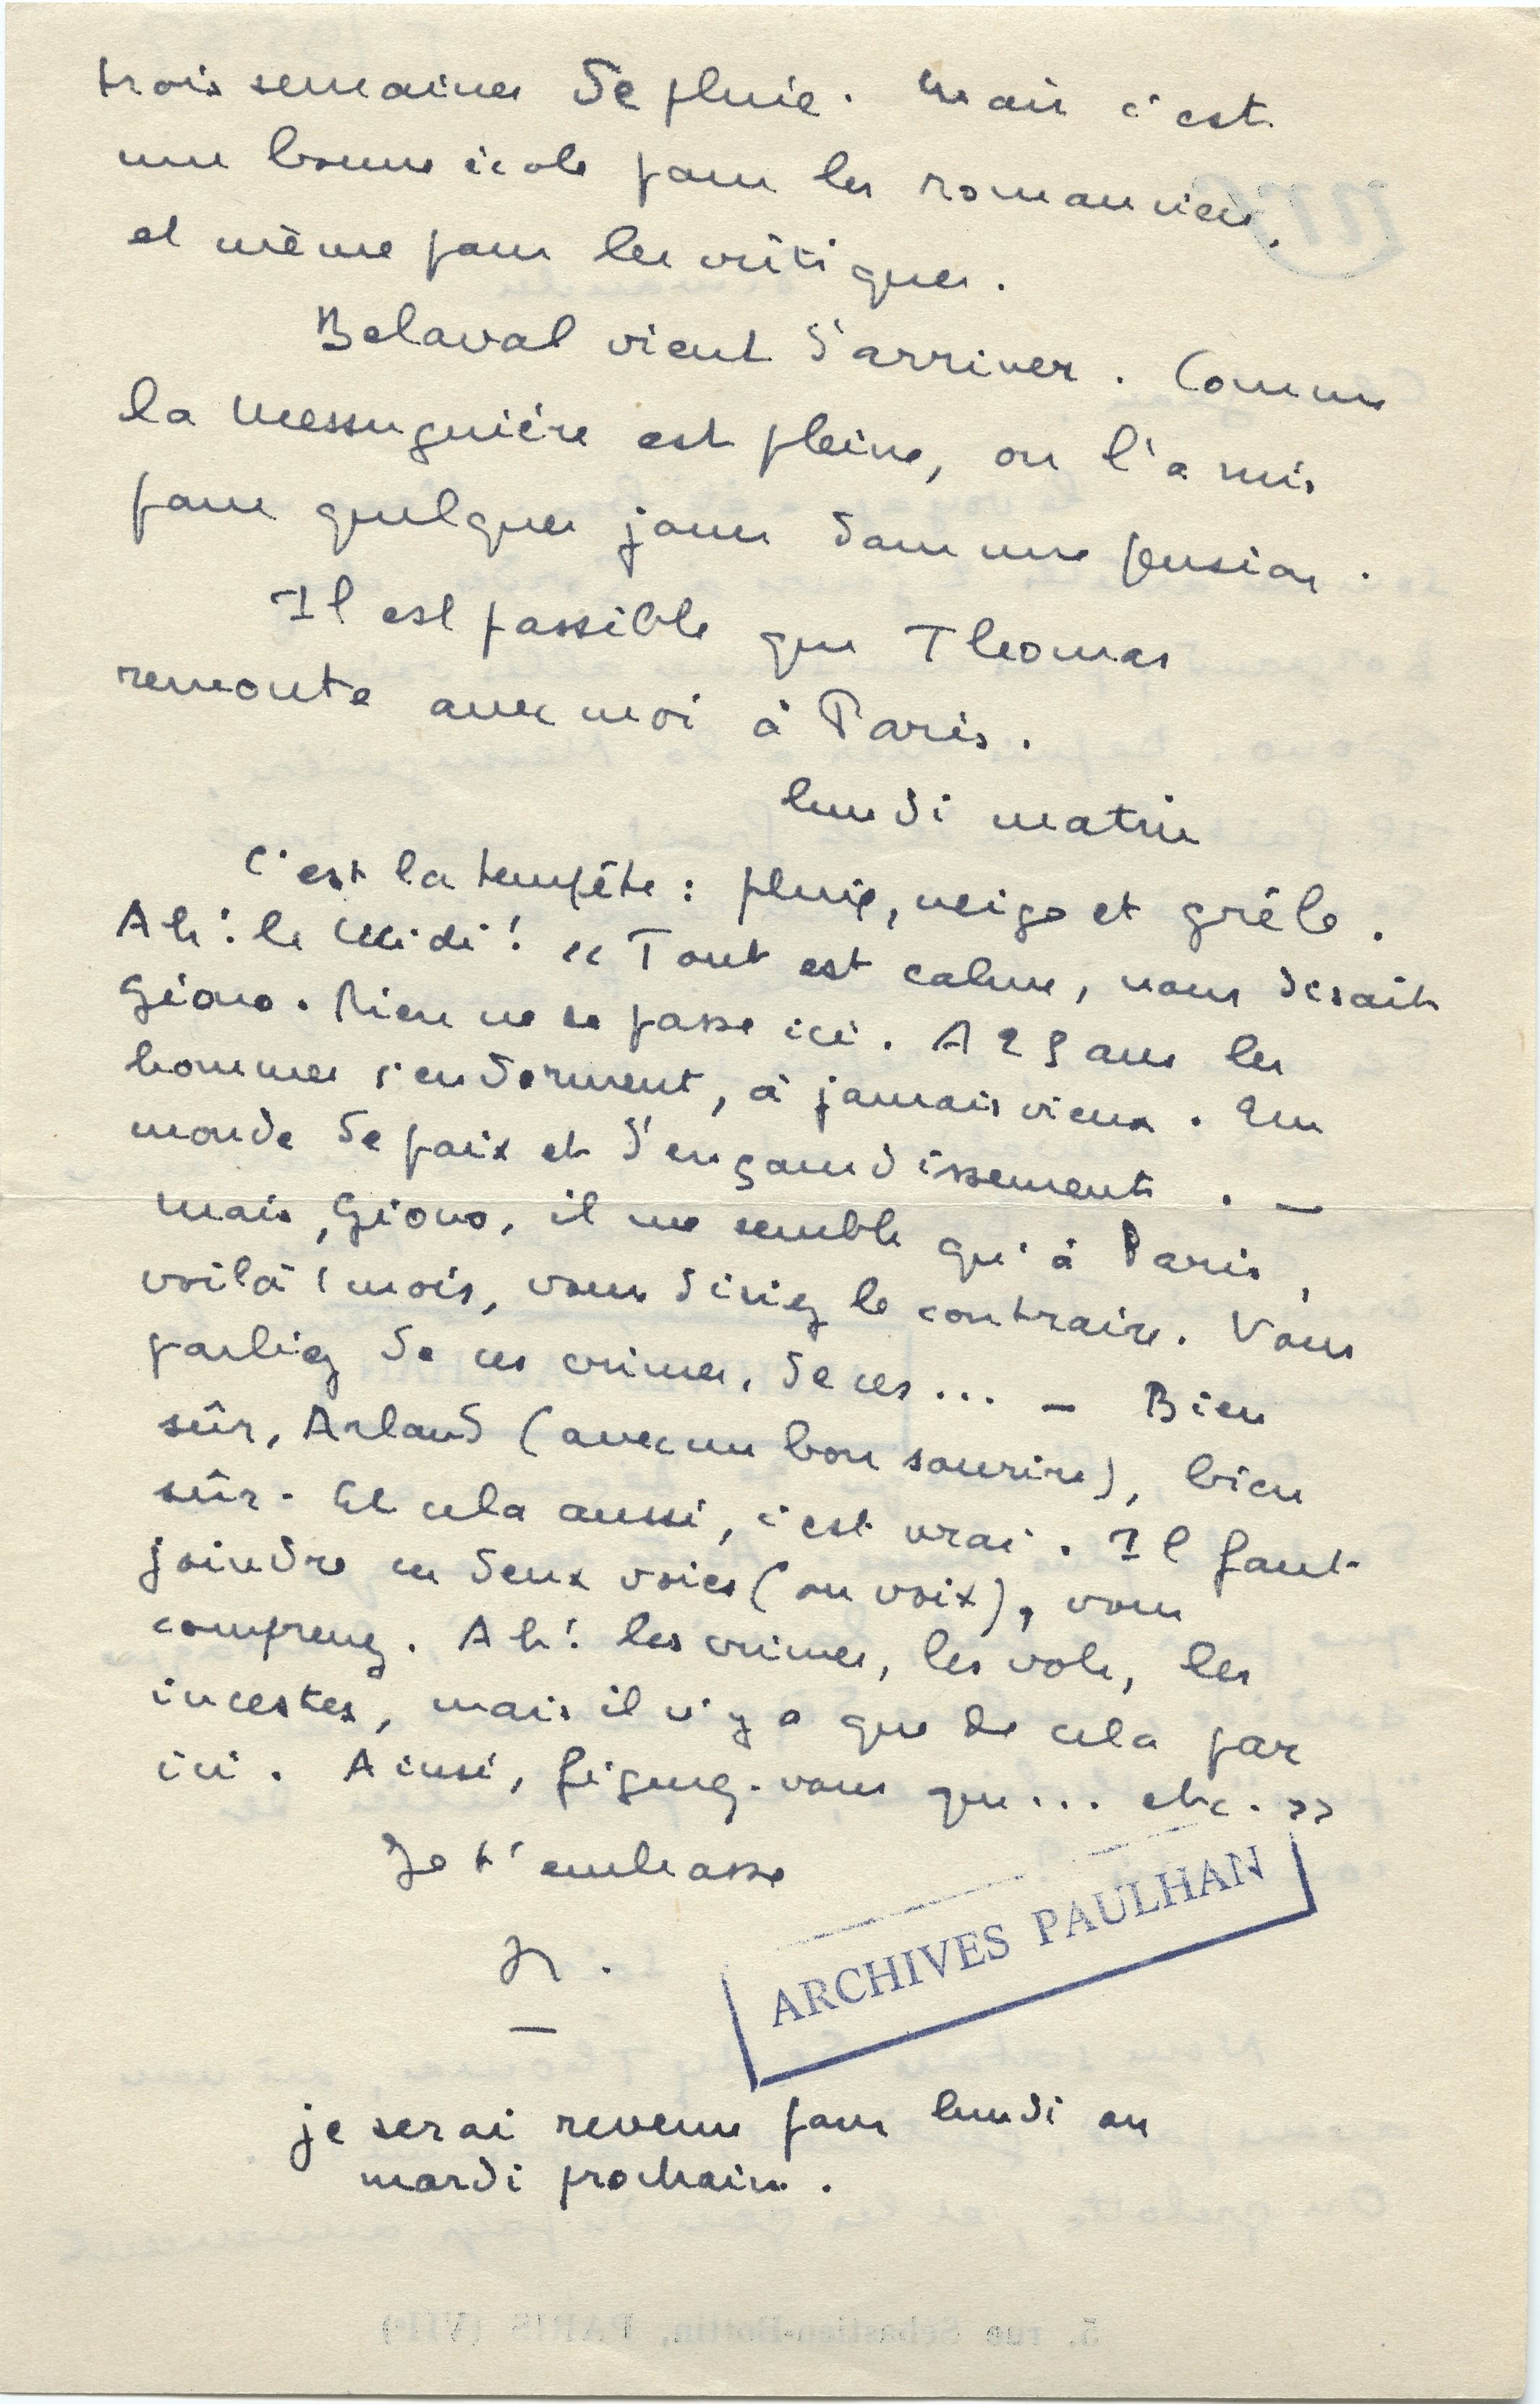 trois semaines de pluie. Mais c'est
une bonne école pour les romanciers,
et même pour les critiques.
Belaval vient d'arriver. Comme
la Messuguière est pleine, on l'a mis
pour quelques jours dans une pension.
Il est possible que Thomas
remonte avec moi à Paris.
lundi matin
C'est la tempête : pluie, neige et grêle.
Ah ! le Midi ! « Tout est calme, nous disait
Giono. Rien ne se passe ici. A 25 ans les
hommes s'endorment, à jamais vieux. Un
monde de paix et d'engourdissement. —
Mais, Giono, il me semble qu'à Paris,
voilà 1 mois, vous disiez le contraire. Vous
parliez de ces crimes, de ces... — Bien
sûr, Arland (avec un bon sourire), bien
sûr. Et cela aussi, c'est vrai. Il faut
joindre ces deux voies (ou voix), vous
comprenez. Ah ! les crimes, les vols, les
incestes, mais il n'y a que de cela par
ici. Ainsi, figurez-vous que... etc. »
Je t'embrasse
M.
ARCHIVES PAULHAN
je serai revenu pour lundi ou
mardi prochain.
5, rue Sébastien-Bottin, PARIS (VIIe)
nrf